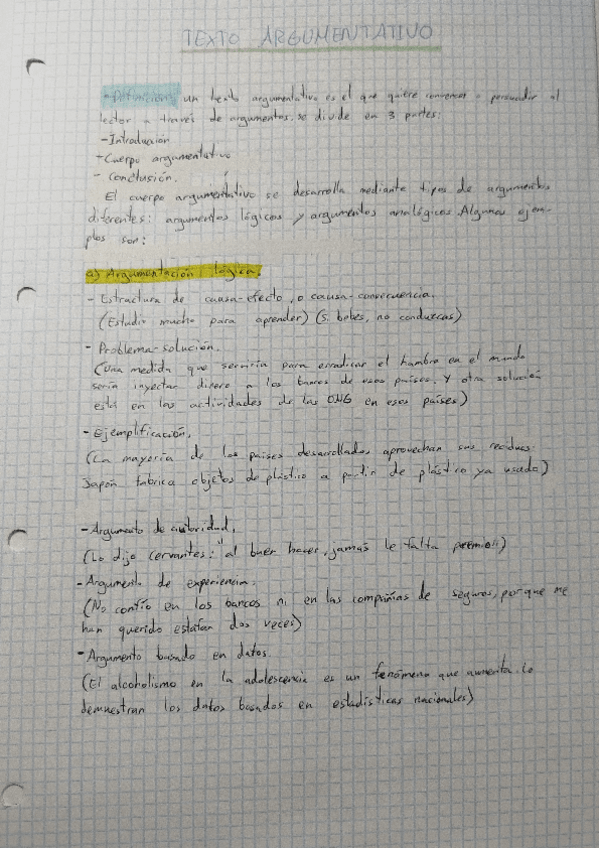 TEXTO ARGUMENTATIVO
-Definición: un texto argumentativo es el que quiere convencer o persuadir al
lector a través de argumentos; se divide en 3 partes:
-Introducción
-Cuerpo argumentativo
- Conclusión.
El cuerpo argumentativo se desarrolla mediante tipos de argumentos
diferentes: argumentos lógicos y argumentos analógicos. Algunos ejem-
plos son:
a) Argumentación lógica.
- Estructura de cuasa-efecto, o causa-consecuencia.
(Estudio mucho para aprender) (Si bebes, no conduzcas)
- Problema-solución.
(Una medida que serviría para erradicar el hambre en el mundo
sería inyectar dinero a los bancos de esos países. Y otra solución
está en las actividades de las ONG en esos países)
- Ejemplificación.
(La mayoría de los países desarrollados aprovechan sus residuos:
Japón fabrica objetos de plástico a partir de plástico ya usado)
-Argumento de autoridad.
(Lo dijo Cervantes: "al buen hacer, jamás le falta premio")
-Argumento de experiencia:
(No confío en los bancos ni en las compañías de seguros, porque me
han querido estafar dos veces)
-Argumento basado en datos.
(El alcoholismo en la adolescencia es un fenómeno que aumenta. Lo
demuestran los datos basados en estadísticas nacionales)